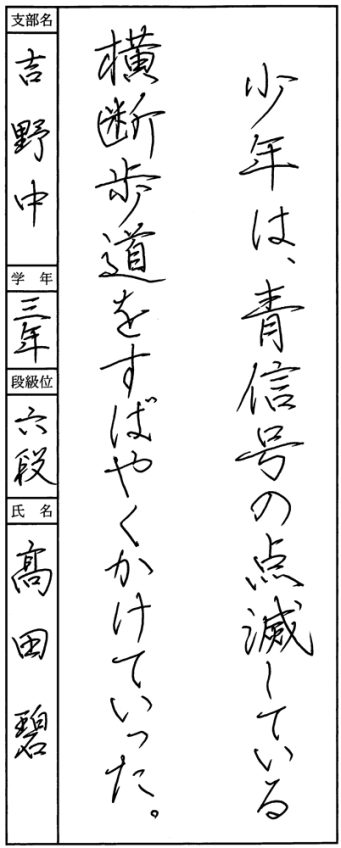 少年は、青信号の点滅している
横断歩道をすばやくかけていった。
支部名
吉野中
学年
三年
段級位
六段
氏名
髙田碧